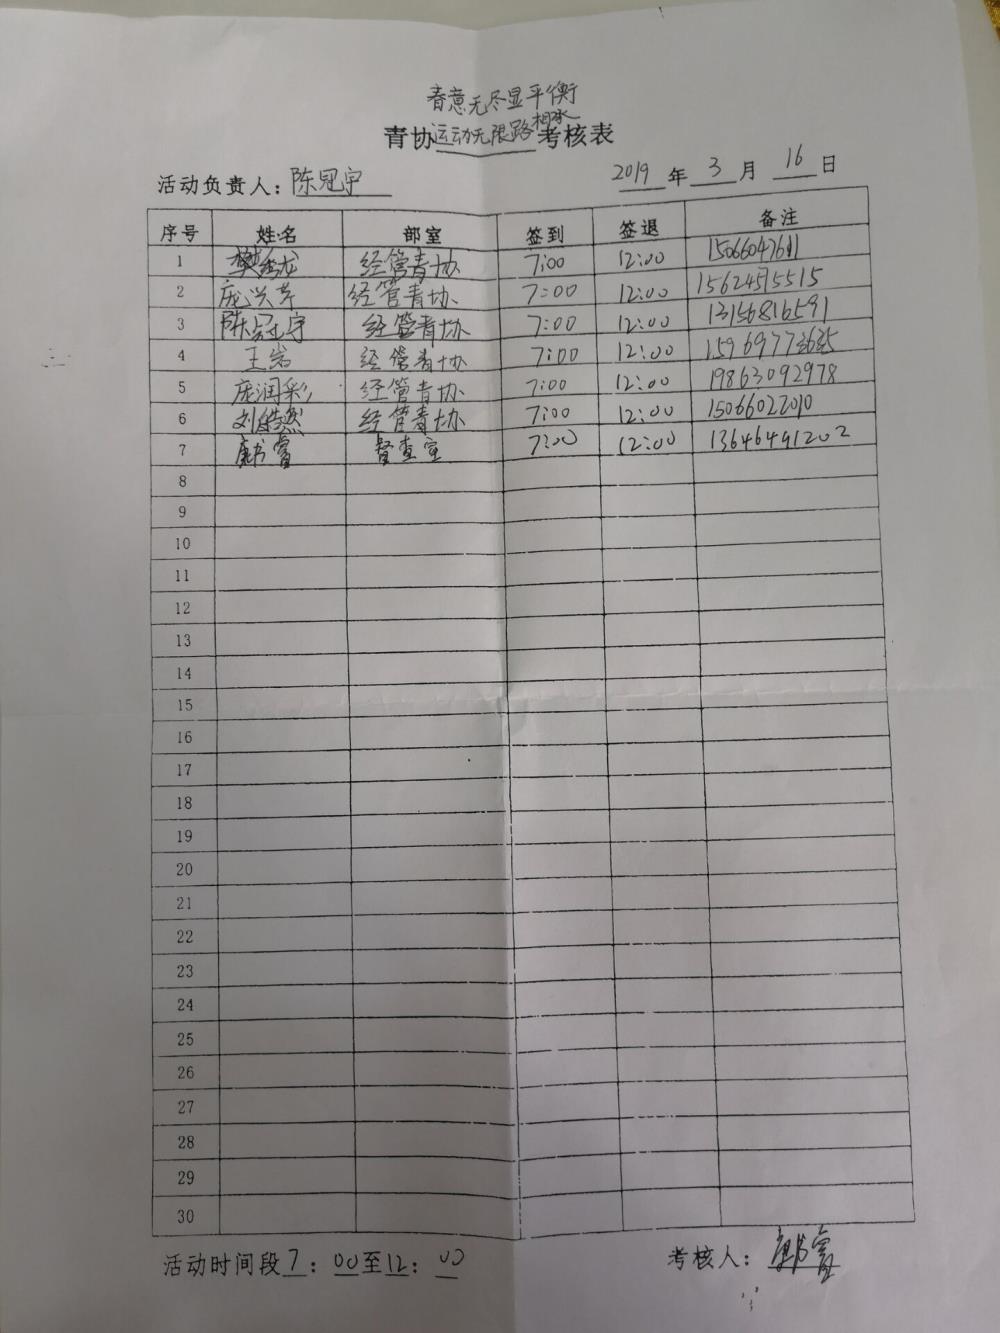 春意无尽显平衡
青协运动无限路相承考核表
活动负责人：陈冠宇 2019年3月16日
序号 姓名 部室 签到 签退 备注
1 樊龙 经管青协 7:00 12:00
2 庞兴芹 经管青协 7:00 12:00 15624575515
3 陈冠宇 经管青协 7:00 12:00 13156816591
4 王岩 经管青协 7:00 12:00
5 庞润彩 经管青协 7:00 12:00 19863092978
6 刘皓然 经管青协 7:00 12:00 15066022010
7 督查室 7:00 12:00 13646491202
8
9
10
11
12
13
14
15
16
17
18
19
20
21
22
23
24
25
26
27
28
29
30
活动时间段7：00至12：00 考核人：